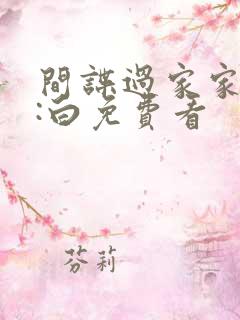 間諜過家家
:白免費看
芬莉